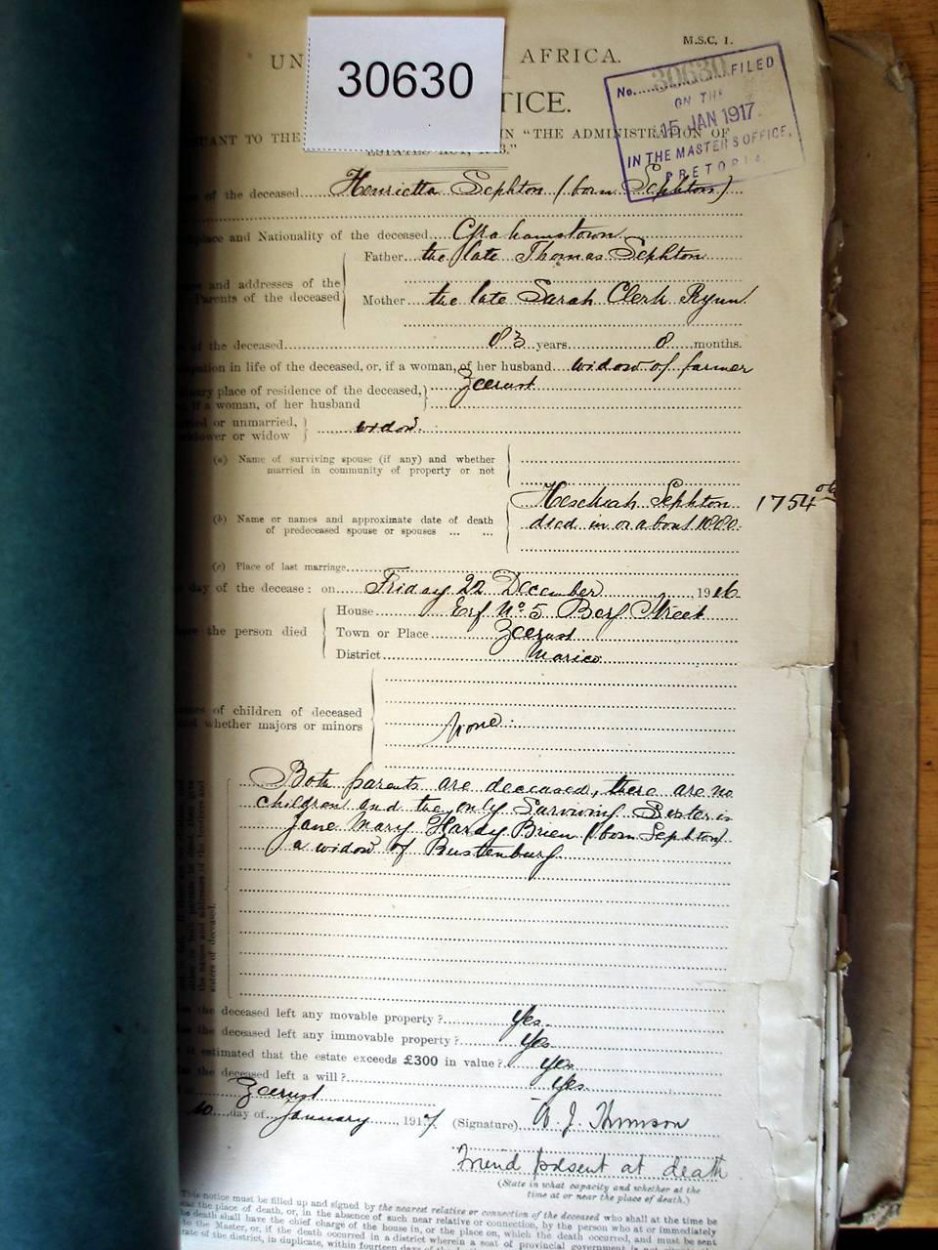 M.S.C, 1.
UN AFRICA.
30630
No. 30630 FILED
ON THE
15 JAN 1917
IN THE MASTER'S OFFICE,
PRETORIA
TICE.
SUANT TO THE IN "THE ADMINISTRATION OF
ESTATES ACT, "
of the deceased Henrietta Sephton (born Sephton)
place and Nationality of the deceased Grahamstown
Father the late Thomas Sephton
and addresses of the
Parents of the deceased
Mother the late Sarah Clerk Rynn
of the deceased 83 years 8 months.
pation in life of the deceased, or, if a woman, of her husband widow of farmer
ary place of residence of the deceased, Zeerust
if a woman, of her husband
ed or unmarried, widow.
ower or widow
(a) Name of surviving spouse (if any) and whether
married in community of property or not
Heschiah Sephton 1754
(b) Name or names and approximate date of death died in or about 1880.
of predeceased spouse or spouses ... ...
(c) Place of last marriage
day of the decease: on Friday 22 December 1916
House Erf No 5 Berg Street
re the person died Town or Place Zeerust
District Marico
es of children of deceased
whether majors or minors None.
Both parents are deceased, there are no
children and the only Surviving Sister is
Jane Mary Hardy Brien (born Sephton)
a widow of Rustenburg
the deceased left any movable property? Yes.
the deceased left any immovable property? Yes
it estimated that the estate exceeds £300 in value? yes
the deceased left a will? Yes
Zeerust
10 day of January 1917. (Signature) A. J. Thomson
Friend present at death
(State in what capacity and whether at the
time at or near the place of death.)
This notice must be filled up and signed by the nearest relative or connection of the deceased who shall at the time be
the place of death, or, in the absence of such near relative or connection, by the person who at or immediately
the death shall have the chief charge of the house in, or the place on, which the death occurred, and must be sent
to the Master, or, if the death occurred in a district wherein a seat of provincial government is not
rate of the district, in duplicate, within fourteen days of the